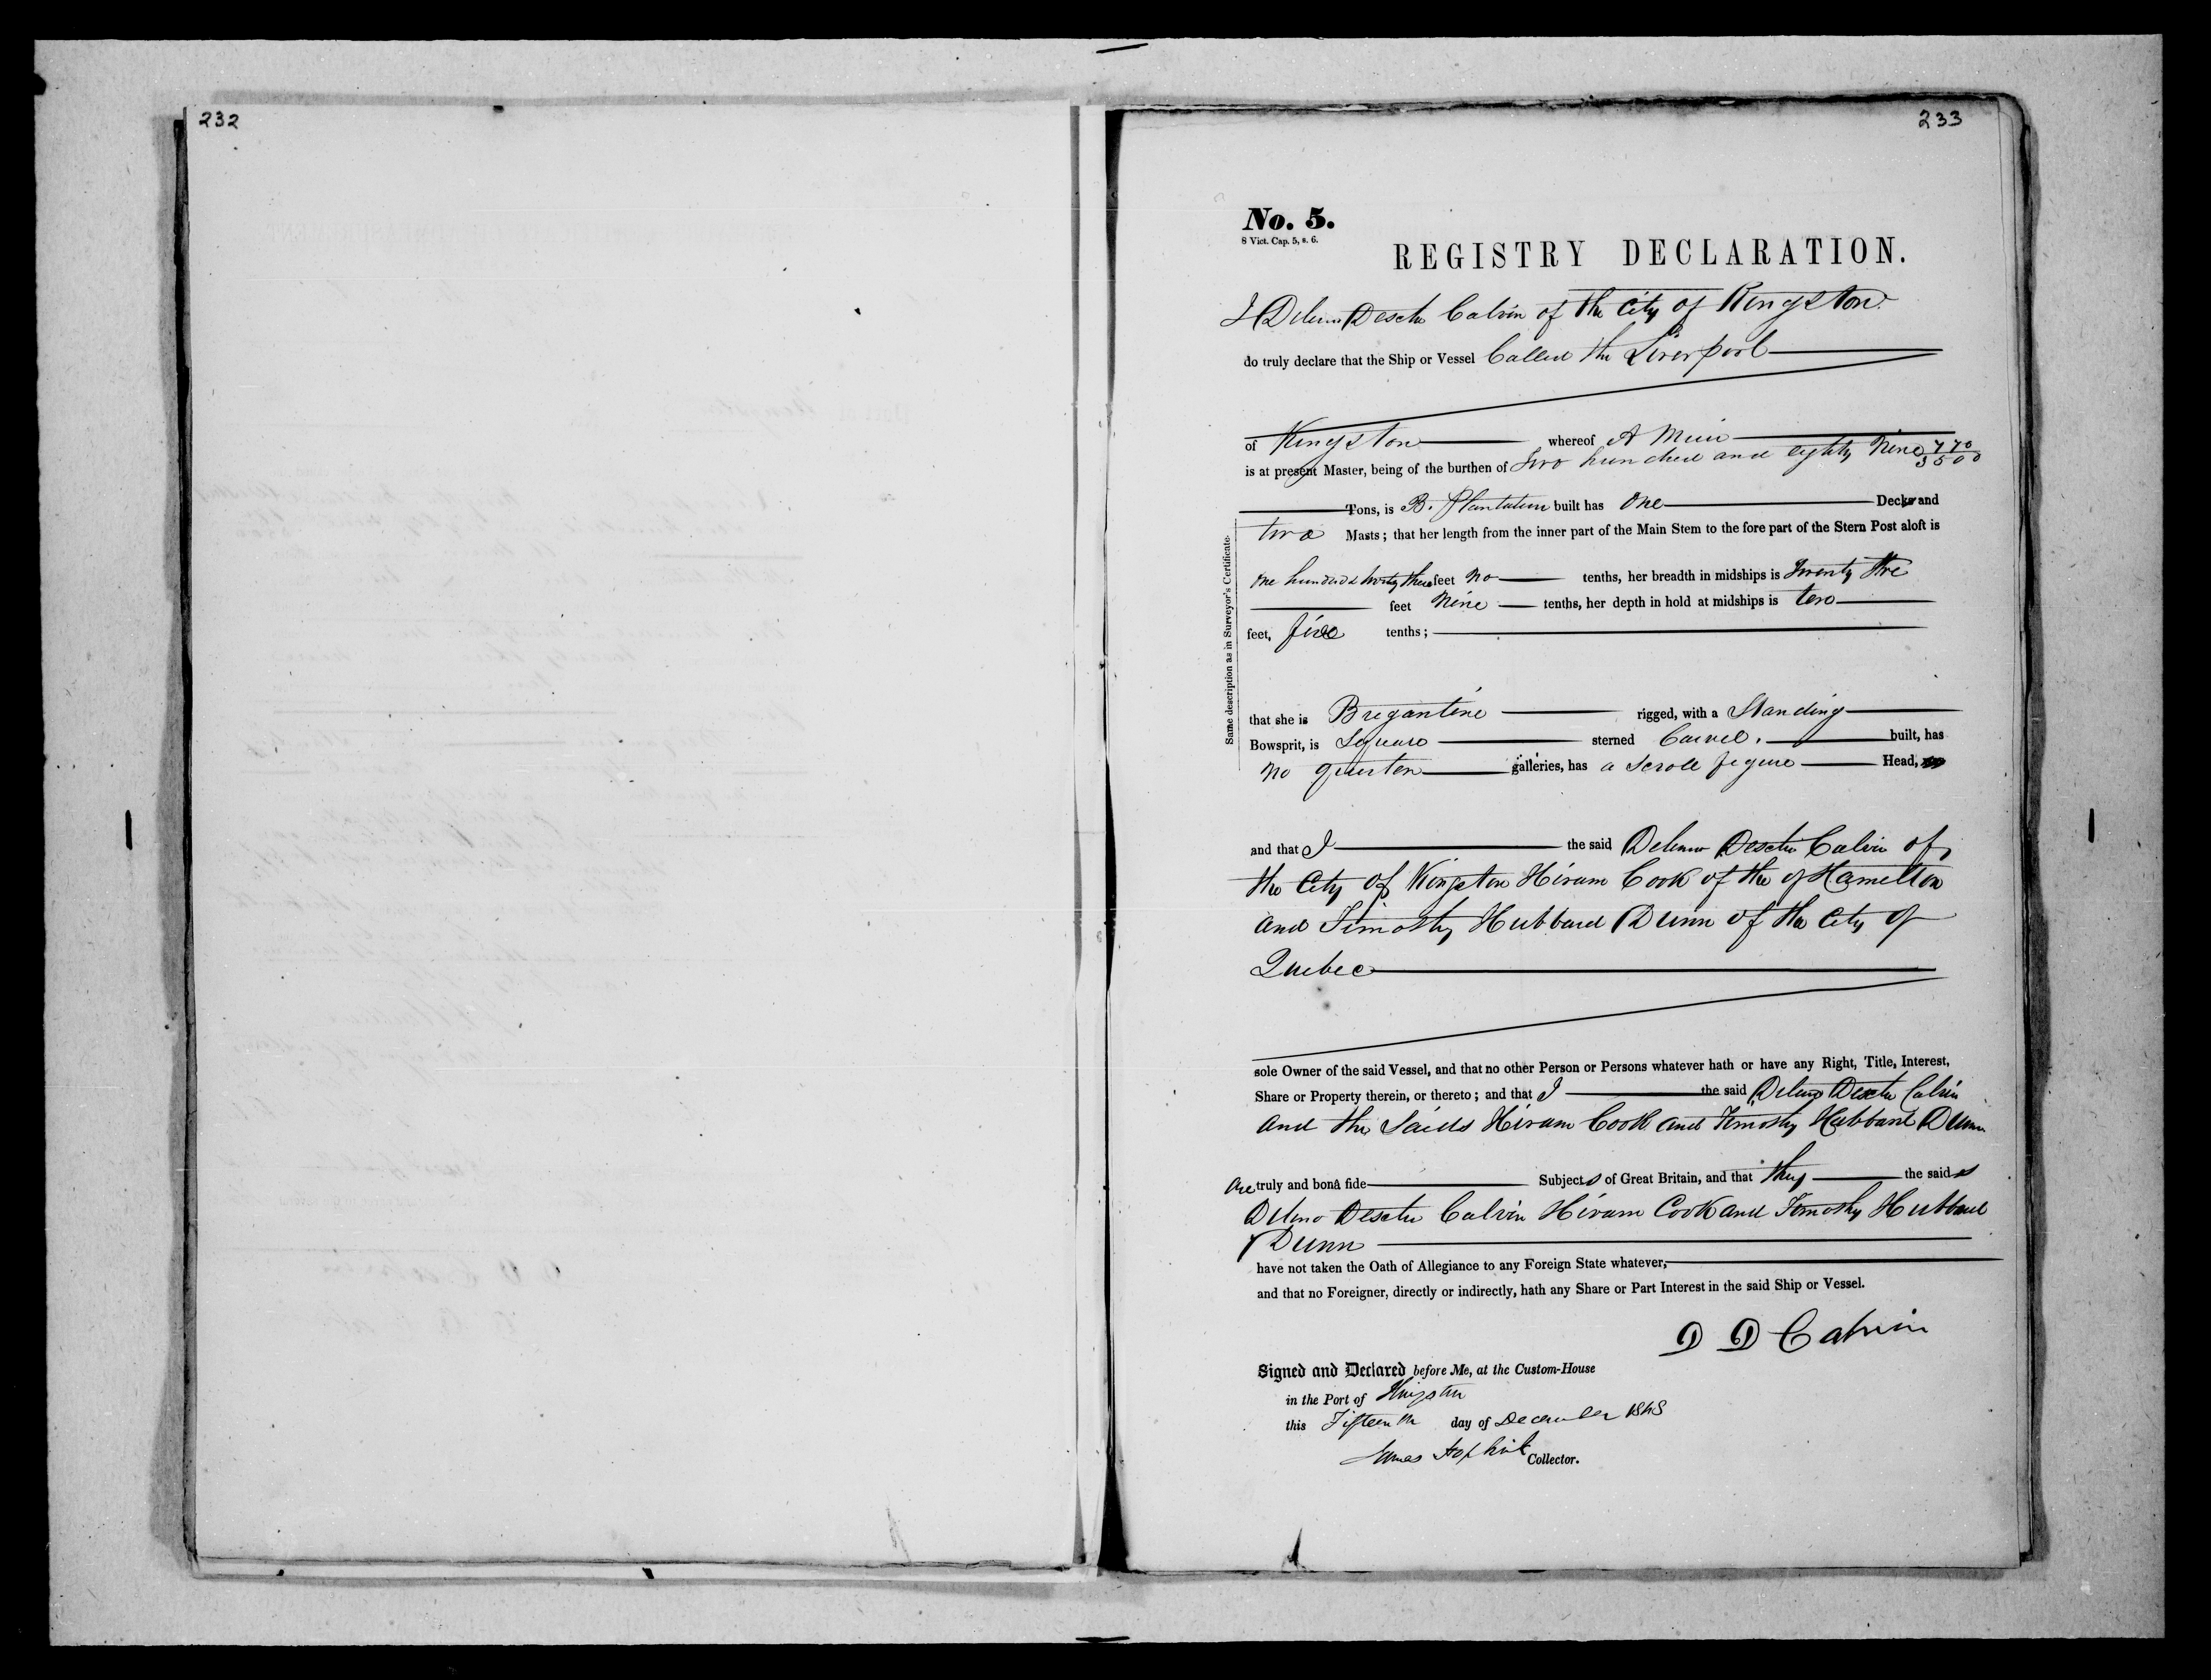 232
233
No. 5.
8 Vict. Cap. 5, s. 6.
REGISTRY DECLARATION.
I Deleno Dexter Calvin of the City of Kingston
do truly declare that the Ship or Vessel Called the Liverpool
of Kingston whereof A Muir
is at present Master, being of the burthen of two hundred and eighty Nine 770/3500
Tons, is B. Plantation built has One Decks and
two Masts; that her length from the inner part of the Main Stem to the fore part of the Stern Post aloft is
One hundred & three feet No tenths, her breadth in midships is Twenty
feet Nine tenths, her depth in hold at midships is
feet, five tenths;
Same description as in Surveyor's Certificate.
that she is Bregantine rigged, with a Standing
Bowsprit, is Square sterned Carvel. built, has
No quarter galleries, has a Scroll figure Head,
and that I the said Deleno Dexter Calvin of
the City of Kingston Hiram Cook of the of Hamelton
and Timothy Hubbard Dunn of the City of
Quebec
sole Owner of the said Vessel, and that no other Person or Persons whatever hath or have any Right, Title, Interest,
Share or Property therein, or thereto; and that I the said Deleno Dexter Calvin
and the Saids Hiram Cook and Timothy Hubbard Dunn
are truly and bonâ fide Subjects of Great Britain, and that they the saids
Deleno Dexter Calvin Hiram Cook and Timothy Hubbard
Dunn
have not taken the Oath of Allegiance to any Foreign State whatever,
and that no Foreigner, directly or indirectly, hath any Share or Part Interest in the said Ship or Vessel.
D D Calvin
Signed and Declared before Me, at the Custom-House
in the Port of Kingston
this Fifteenth day of December 1848
James Hopkirk Collector.